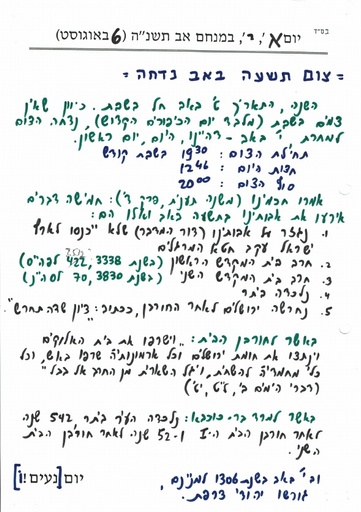 בס״ד
יום א׳, י׳, במנחם אב תשנ״ה (6 באוגוסט)
= צום תשעה באב נדחה =
השנה, התאריך ט׳ באב חל בשבת. כיוון שאין
צמים בשבת (מלבד יום הכיפורים הקדוש), נדחה הצום
למחרת י׳ באב - דהיינו, היום, יום ראשון.
תחילת הצום: 19³⁰ בשבת קודש
חצות היום: 12⁴⁶
סוף הצום: 20⁰⁰
אמרו חכמינו (משנה תענית, פרק ד׳): חמישה דברים
אירעו את אבותינו בתשעה באב ואלו הם:
1. נגזר על אבותינו (דור המדבר) שלא ייכנסו לארץ
ישראל עקב חטא המרגלים
2. חרב בית המקדש הראשון (בשנת 3338, 422 לפה״ס)
3. חרב בית המקדש השני (בשנת 3830, 70 לסה״נ)
4. נלכדה ביתר
5. נחרשה ירושלים לאחר החורבן, ככתוב: "ציון שדה תחרש".
באשר לחורבן הבית: "וישרפו את בית האלוקים
וינתצו את חומת ירושלים וכל ארמנותיה שרפו באש, וכל
כלי מחמדיה להשחית, ויגל השארית מן החרב אל בבל"
(דברי הימים ב׳, ל״ו, י״ט)
באשר למרד בר-כוכבא: נלכדה העיר ביתר 542 שנה
לאחר חורבן הבית ה-I ו-52 שנה לאחר חורבן הבית
השני.
וב י׳ באב בשנת 1306 למנינם,
גורשו יהודי צרפת.
יום [נעים !]